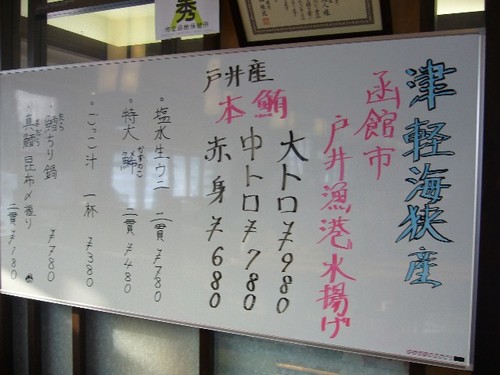 津軽海狭産
函館市
戸井漁港水揚げ
戸井産
本鮪
大トロ ¥980
中トロ ¥780
赤身 ¥680
・塩水生ウニ 二貫 ¥780
・特大 鰰 二貫 ¥480
・ごっこ汁 一杯 ¥380
・鱈ちり鍋 ¥780
たら
・真鱈昆布〆握り 二貫 ¥180
秀